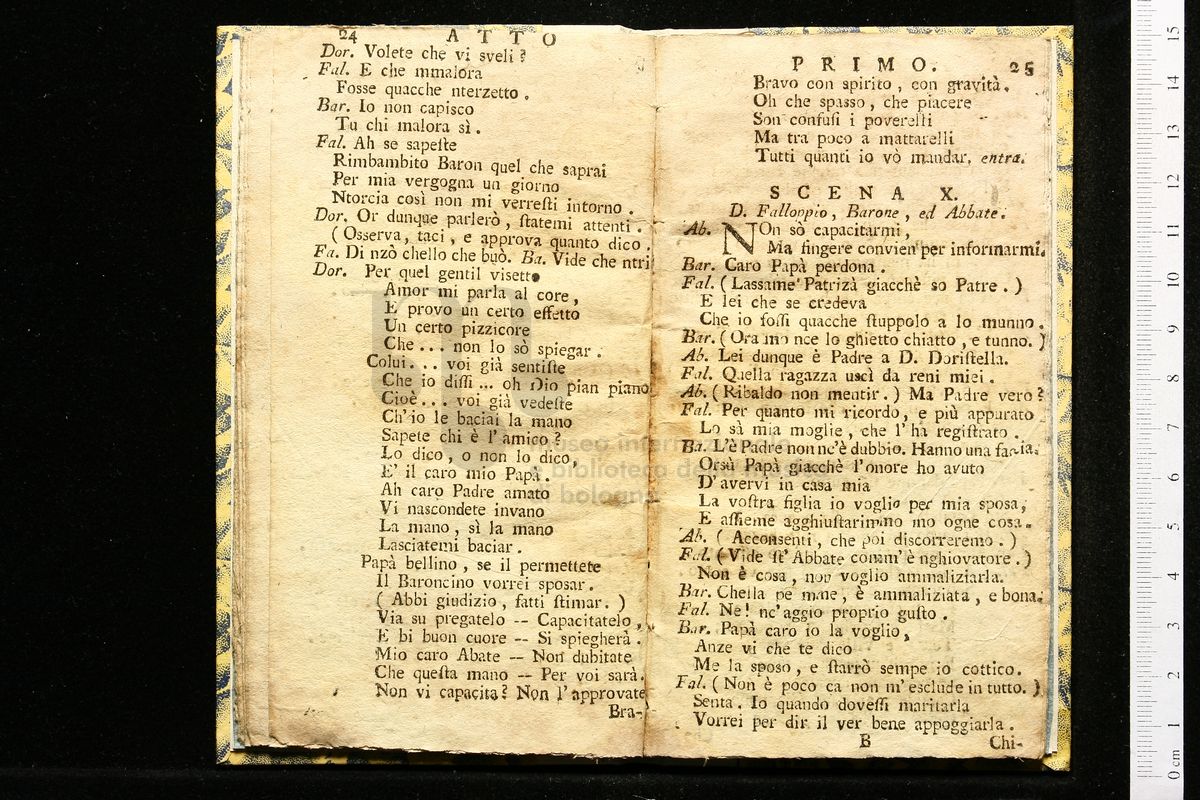 24 ATTO
Dor. Volete che vi sveli?
Fal. E che mmalora
Fosse quacche nterzetto.
Bar. Io non capisco
Tu chi malora sì.
Fal. Ah se sapeſte
Rimbambito Baron quel che saprai
Per mia vergogna un giorno
Ntorcia così non mi verreſti intorno.
Dor. Or dunque parlerò, ſtatemi attenti.
(Osserva, taci, e approva quanto dico.
Fa. Di nzò chello che buò. Ba. Vide che ntri
Dor. Per quel gentil visetto
Amor mi parla al core,
E provo un certo effetto
Un certo pizzicore
Che... non lo sò spiegar.
Colui... voi già sentiſte
Che io diſſi... oh Dio pian piano
Cioè... voi già vedeſte
Ch'io le baciai la mano
Sapete chi è l'amico?
Lo dico, o non lo dico,
E' il caro mio Papà.
Ah caro Padre amato
Vi nascondete invano
La mano, sì la mano
Lasciatemi baciar.
Papà bellino, se il permettete
Il Baroncino vorrei sposar.
(Abbi giudizio, fatti ſtimar.)
Via su pregatelo -- Capacitatelo,
E bi buon cuore -- Si spiegherà.
Mio caro Abate -- Non dubitate
Che queſta mano -- Per voi sarà.
Non vi capacita? Non l'approvate
Bra-
PRIMO. 25
Bravo con spirito, con gravità.
Oh che spasso, che piacere
Son confuſi i povereſti
Ma tra poco a mattarelli
Tutti quanti io vò mandar. entra.
SCENA X.
D. Falloppio, Barone, ed Abbate.
Ab. NOn sò capacitarmi,
Ma fingere convien per informarmi.
Bar. Caro Papà perdona.
Fal. (Lassame Patrizà giacchè so Patre.)
E lei che se credeva
Che io foſſi quacche ſtuppolo a lo munno.
Bar. (Ora mo nce lo ghietto chiatto, e tunno.)
Ab. Lei dunque è Padre a D. Doriſtella.
Fal. Quella ragazza uscì da reni miei.
Ab. (Ribaldo non mentir.) Ma Padre vero?
Fal. Per quanto mi ricordo, e più appurato
Lo sà mia moglie, che l'ha regiſtrato.
Ba. L'è Padre non nc'è dubbio. Hanno una faccia.
Orsù Papà giacchè l'onore ho avuto
D'avervi in casa mia
La voſtra figlia io voglio per mia sposa,
E aſſieme agghiuſtarimmo mo ogne cosa.
Ab. (Acconsenti, che poi discorreremo.)
Fal. (Vide ſt'Abbate comm'è nghiovatore.)
Non è cosa, non voglio ammaliziarla.
Bar. Chella pe mme, è ammaliziata, e bona.
Fal. Ne! nc'aggio proprio guſto.
Bar. Papà caro io la voglio,
Anze vi che te dico
Me la sposo, e ſtarrò sempe io cottico.
Fal. (Non è poco ca non m'esclude in tutto.)
Senta. Io quando doveſſi maritarla
Vorrei per dir il ver bene appoggiarla.
B Chi-